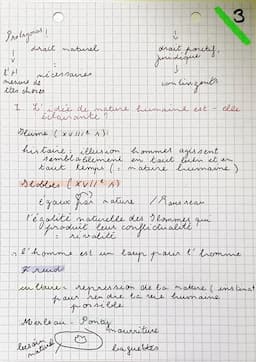 3
Protagoras !
droit naturel
droit positif,
juridique
l'H
mesure de
ttes choses
nécessaires
contingents
I L'idée de nature humaine est-elle
éclairante ?
Hume (XVIII° s) :
histoire : illusion hommes agissent
semblablement en tout lieu et en
tout temps (: nature humaine)
Hobbes (XVII° s)
Égaux par nature / Rousseau
l'égalité naturelle des hommes qui
produit leur conflictualité
: rivalité
"l'homme est un loup pour l'homme
Freud
culture = repression de la nature (instinct
pour rendre la vie humaine
possible
Merleau-Ponty
nourriture
besoin
naturel
baguettes